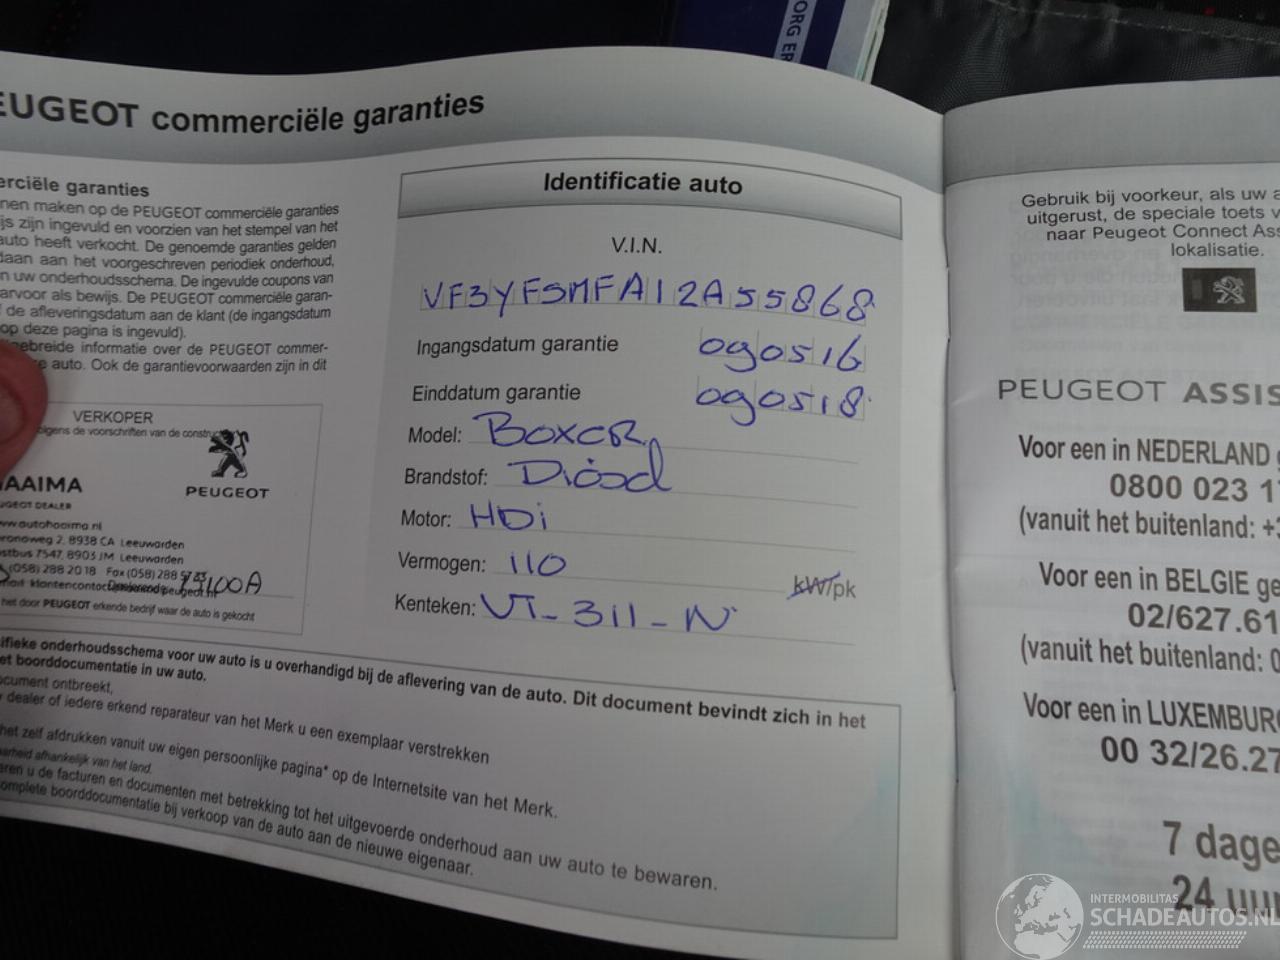 ORG ER
EUGEOT commerciële garanties
erciële garanties
nen maken op de PEUGEOT commerciële garanties
js zijn ingevuld en voorzien van het stempel van het
auto heeft verkocht. De genoemde garanties gelden
daan aan het voorgeschreven periodiek onderhoud,
n uw onderhoudsschema. De ingevulde coupons van
arvoor als bewijs. De PEUGEOT commerciële garan-
f de afleveringsdatum aan de klant (de ingangsdatum
op deze pagina is ingevuld).
gebreide informatie over de PEUGEOT commer-
e auto. Ook de garantievoorwaarden zijn in dit
VERKOPER
olgens de voorschriften van de construc
AAIMA
PEUGEOT
UGEOT DEALER
ww.autohaaima.nl
ronoweg 2, 8938 CA Leeuwarden
stbus 7547, 8903 JM Leeuwarden
(058) 288 20 18 Fax (058) 288 57 33
73100A
het door PEUGEOT erkende bedrijf waar de auto is gekocht
Identificatie auto
V.I.N.
VF3YFSMFA12A55868
Ingangsdatum garantie 090516
Einddatum garantie 090518
Model: Boxer
Brandstof: Diësel
Motor: HDi
Vermogen: 110 kW/pk
Kenteken: VT-311-N
ifieke onderhoudsschema voor uw auto is u overhandigd bij de aflevering van de auto. Dit document bevindt zich in het
et boorddocumentatie in uw auto.
ocument ontbreekt,
dealer of iedere erkend reparateur van het Merk u een exemplaar verstrekken
het zelf afdrukken vanuit uw eigen persoonlijke pagina* op de Internetsite van het Merk.
aarheid afhankelijk van het land.
aren u de facturen en documenten met betrekking tot het uitgevoerde onderhoud aan uw auto te bewaren.
complete boorddocumentatie bij verkoop van de auto aan de nieuwe eigenaar.
Gebruik bij voorkeur, als uw a
uitgerust, de speciale toets v
naar Peugeot Connect Ass
lokalisatie.
PEUGEOT ASSIS
Voor een in NEDERLAND g
0800 023 1
(vanuit het buitenland: +3
Voor een in BELGIE ge
02/627.61
(vanuit het buitenland: 0
Voor een in LUXEMBURG
00 32/26.27
7 dage
24 uur
INTERMOBILITAS
SCHADEAUTOS.NL